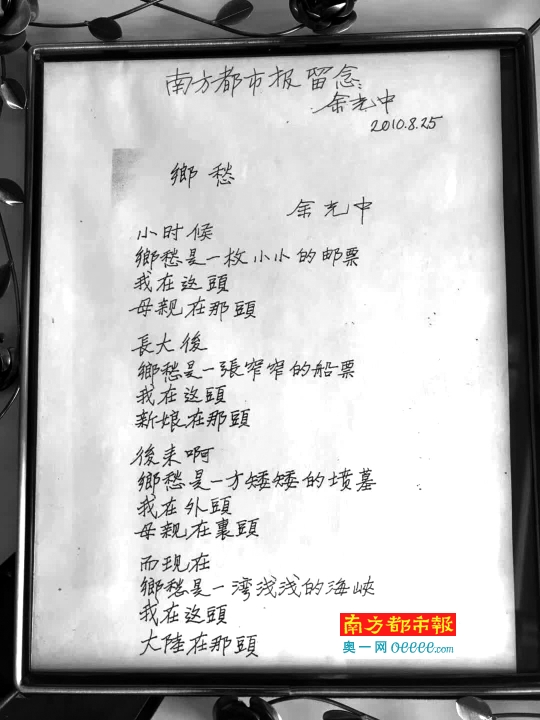 南方都市报留念：
余光中
2010.8.25
鄉愁
余光中
小时候
鄉愁是一枚小小的邮票
我在这頭
母親在那頭
長大後
鄉愁是一張窄窄的船票
我在这頭
新娘在那頭
後来啊
鄉愁是一方矮矮的墳墓
我在外頭
母親在裏頭
而现在
鄉愁是一湾浅浅的海峽
我在这頭
大陸在那頭
南方都市報
奥一网 oeeee.com